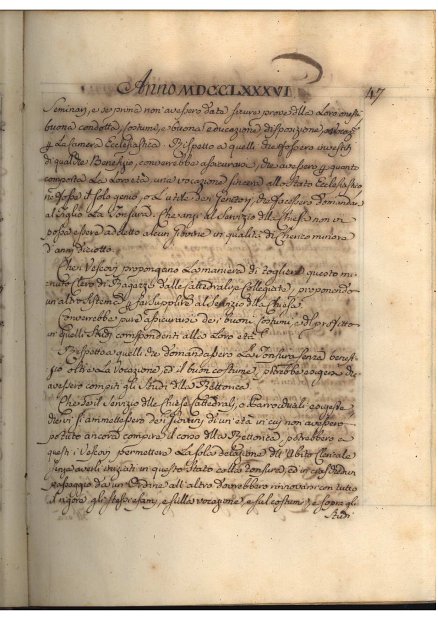 Anno MDCCLXXXVI 47
Seminarj, e se prima non avessero data sicure prove della Loro onesta
buona condotta, costumi, e buona educazione disposizione, e vocaz.e
p. La Carriera Ecclesiastica. Rispetto a quelli che fossero investiti
di qualche Benefizio, converrebbe assicurarsi, che avessero p. quanto
comporta La Loro età una vocazione sincera allo Stato Ecclesiastico,
ne fosse il solo genio, o L'utile dei Genitori, che facessero domandar
al figlio La Tonsura. Che anzi al Servizio delle Chiese non vi
possa essere addetto alcun Giovine in qualità di Cherico minore
d'anni diciotto.
Che i Vescovi propongano La maniera di togliere questo mi
nuto Clero di Ragazzi dalle Cattedrali, e Collegiate, proponendo
un'altro sistema p. far supplire al servizio delle Chiese.
Converrebbe pure assicurarsi dei buoni costumi, e del profitto
in quelli Studj corrispondenti alle Loro età.
Rispetto a quelli che domandassero La Tonsura senza benefi
zio oltre La vocazione, ed il buon costume, potrebbe esigersi che
avessero compiti gli Studj della Rettorica.
Che se il Servizio delle Chiese Cattedrali, o Parrocchiali
si ammettessero dei Giovani di un'età in cui non avessero
potuto ancora compire il corso della Rettorica, potrebbero a
questi i Vescovi permettere La sola delazione dell'Abito Clericale
senza averli iniziati in questo Stato colla Tonsura, ed in caso di un
passaggio da un'Ordine all'altro dovrebbero rinnovarsi con tutto
il rigore gli stessi esami, e sulla vocazione, e sul costume, e sopra gli
Studj